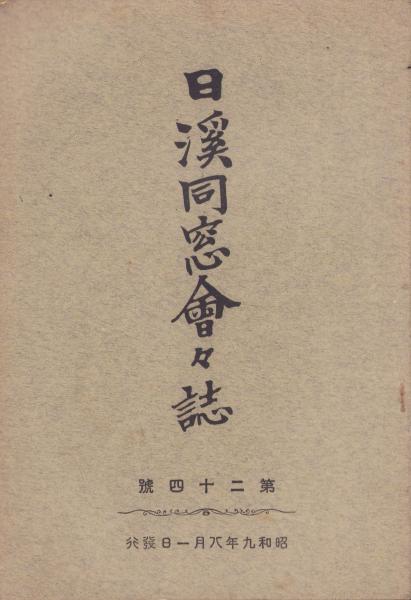 日溪同窓會々誌
第二十四號
昭和九年八月一日發行